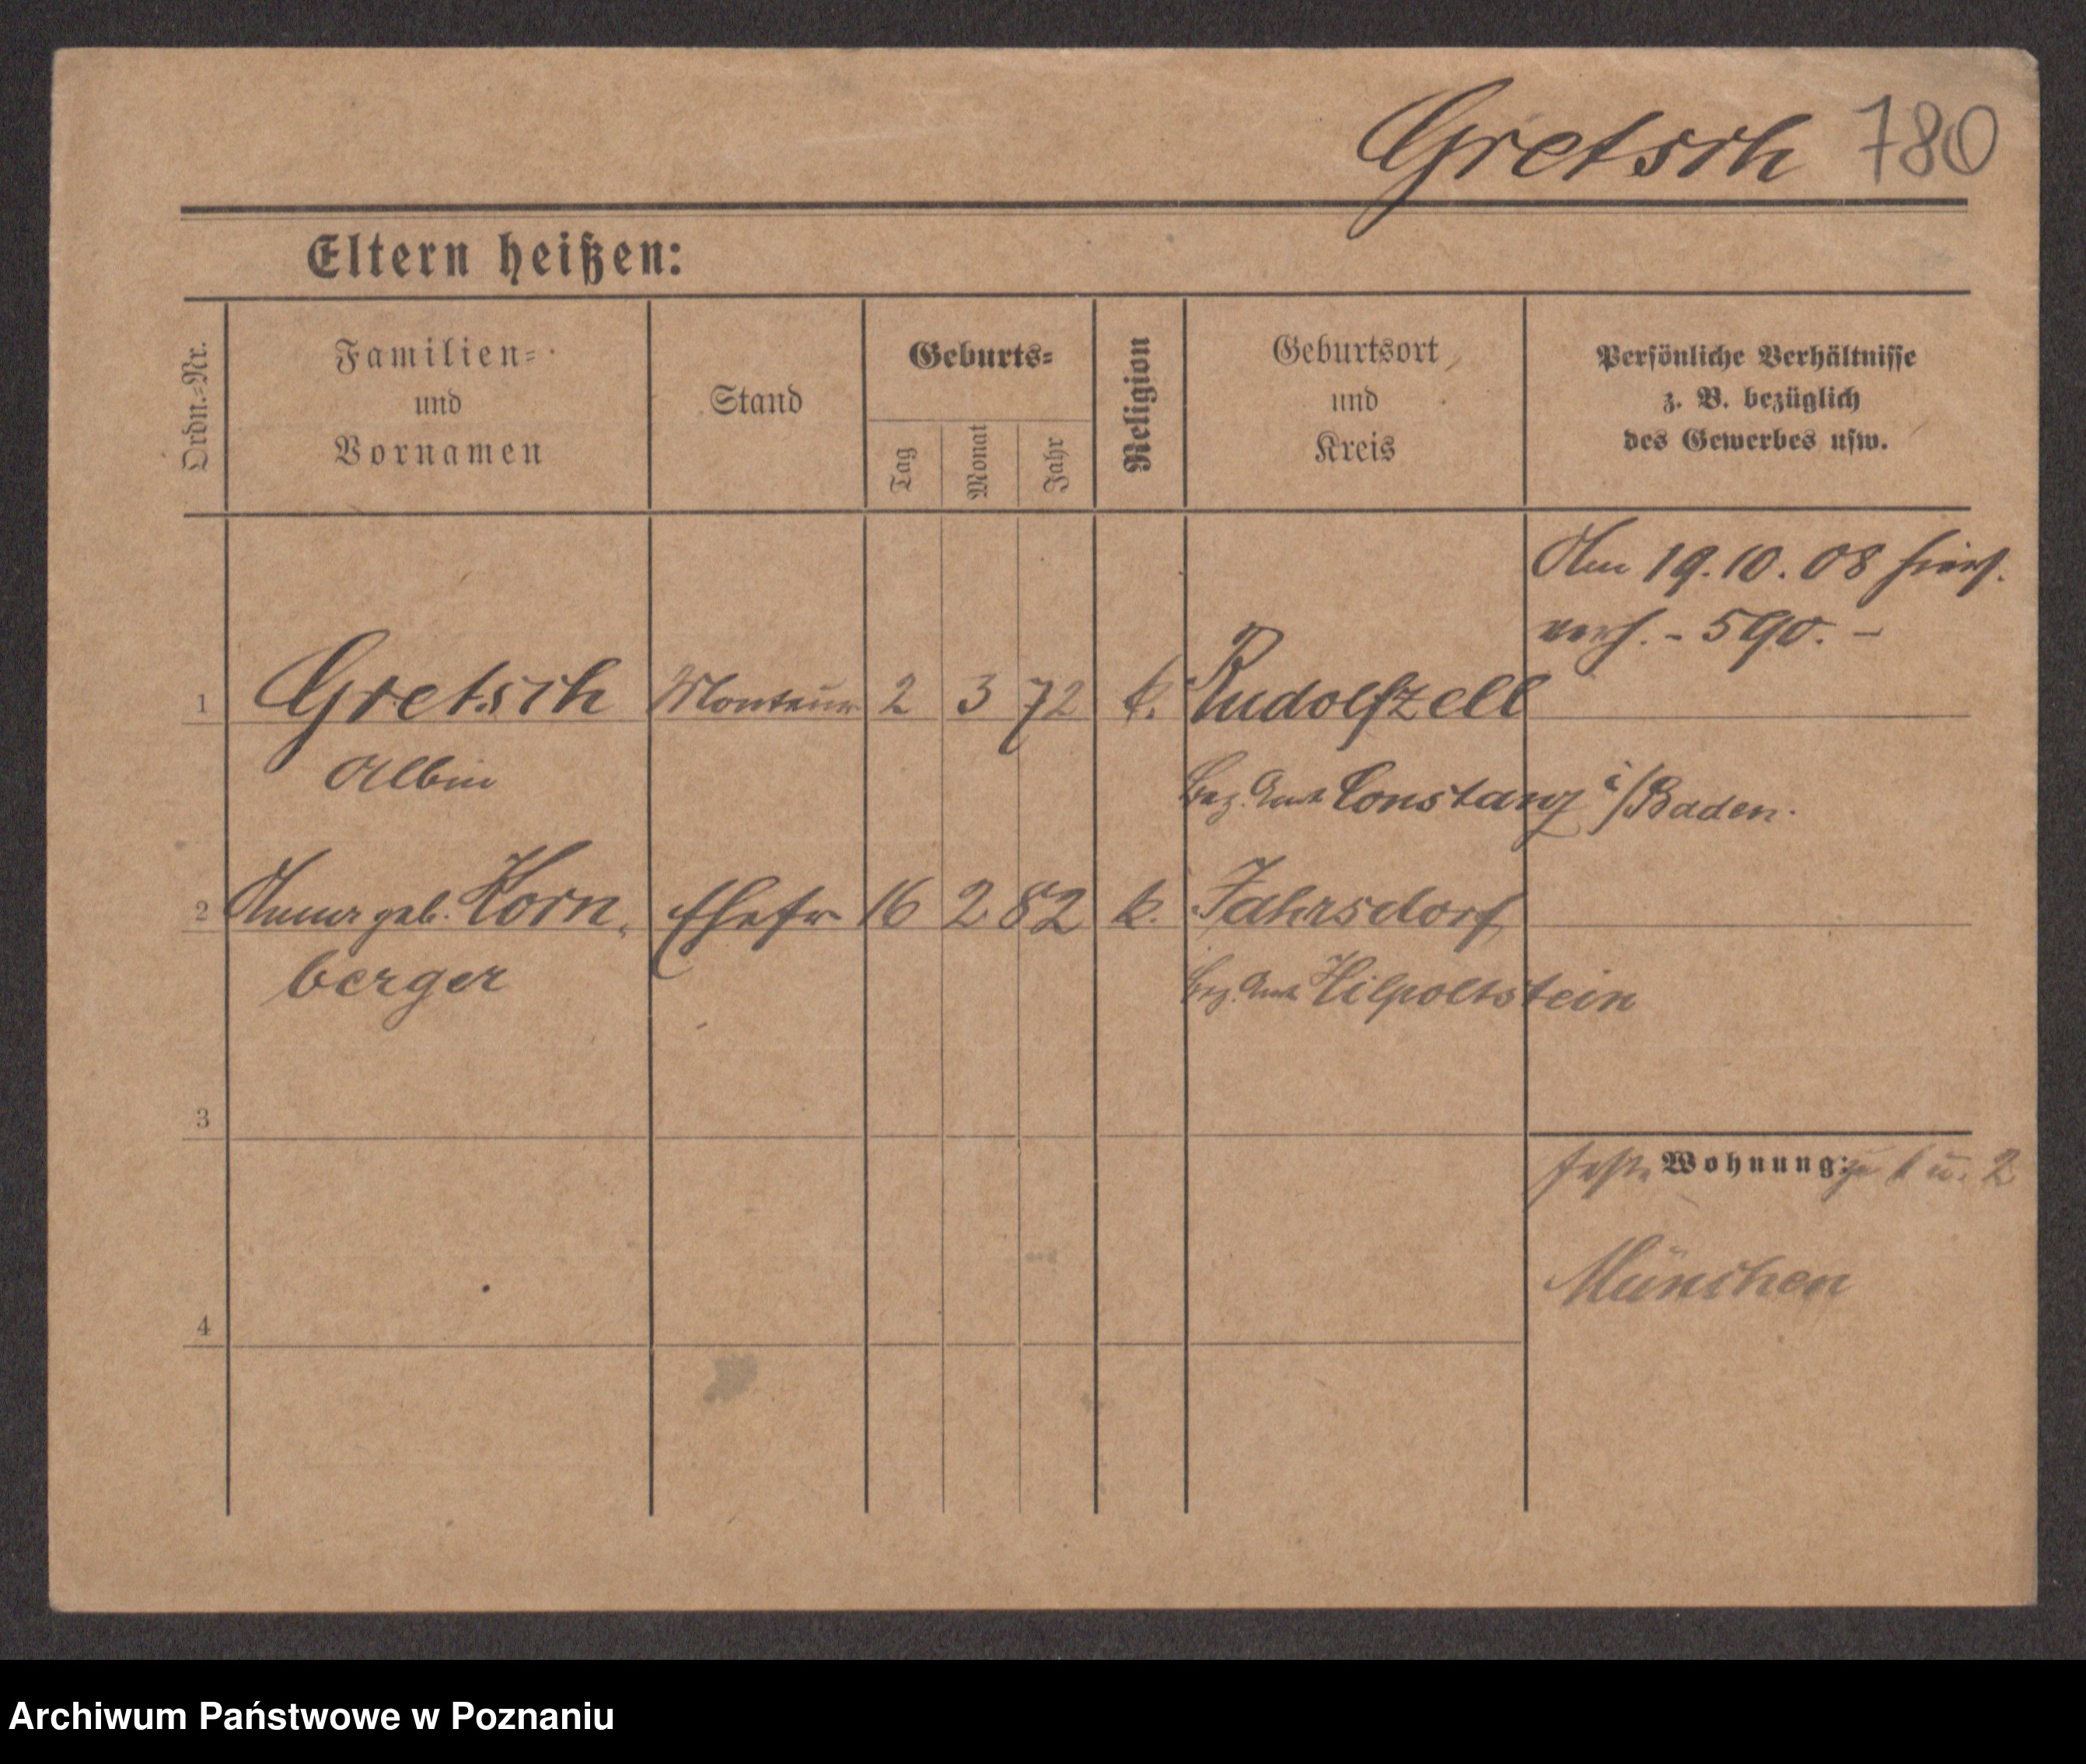 Gretsch 780
Eltern heißen:
Ordn.-Nr.
Familien-
und
Vornamen
Stand
Geburts-
Tag
Monat
Jahr
Religion
Geburtsort
und
Kreis
Persönliche Verhältnisse
z. B. bezüglich
des Gewerbes usw.
Am 19.10.08 hiers.
verh. - 590. -
1 Gretsch Monteur 2 3 72 k. Rudolfzell
Albin
Bez. Amt Constanz i/Baden.
2 Anna geb. Horn- Ehefr 16 2 82 k. Jahrsdorf
berger
Bez. Amt Hilpoltstein
3
feste Wohnung: zu 1 u. 2
München
4
Archiwum Państwowe w Poznaniu